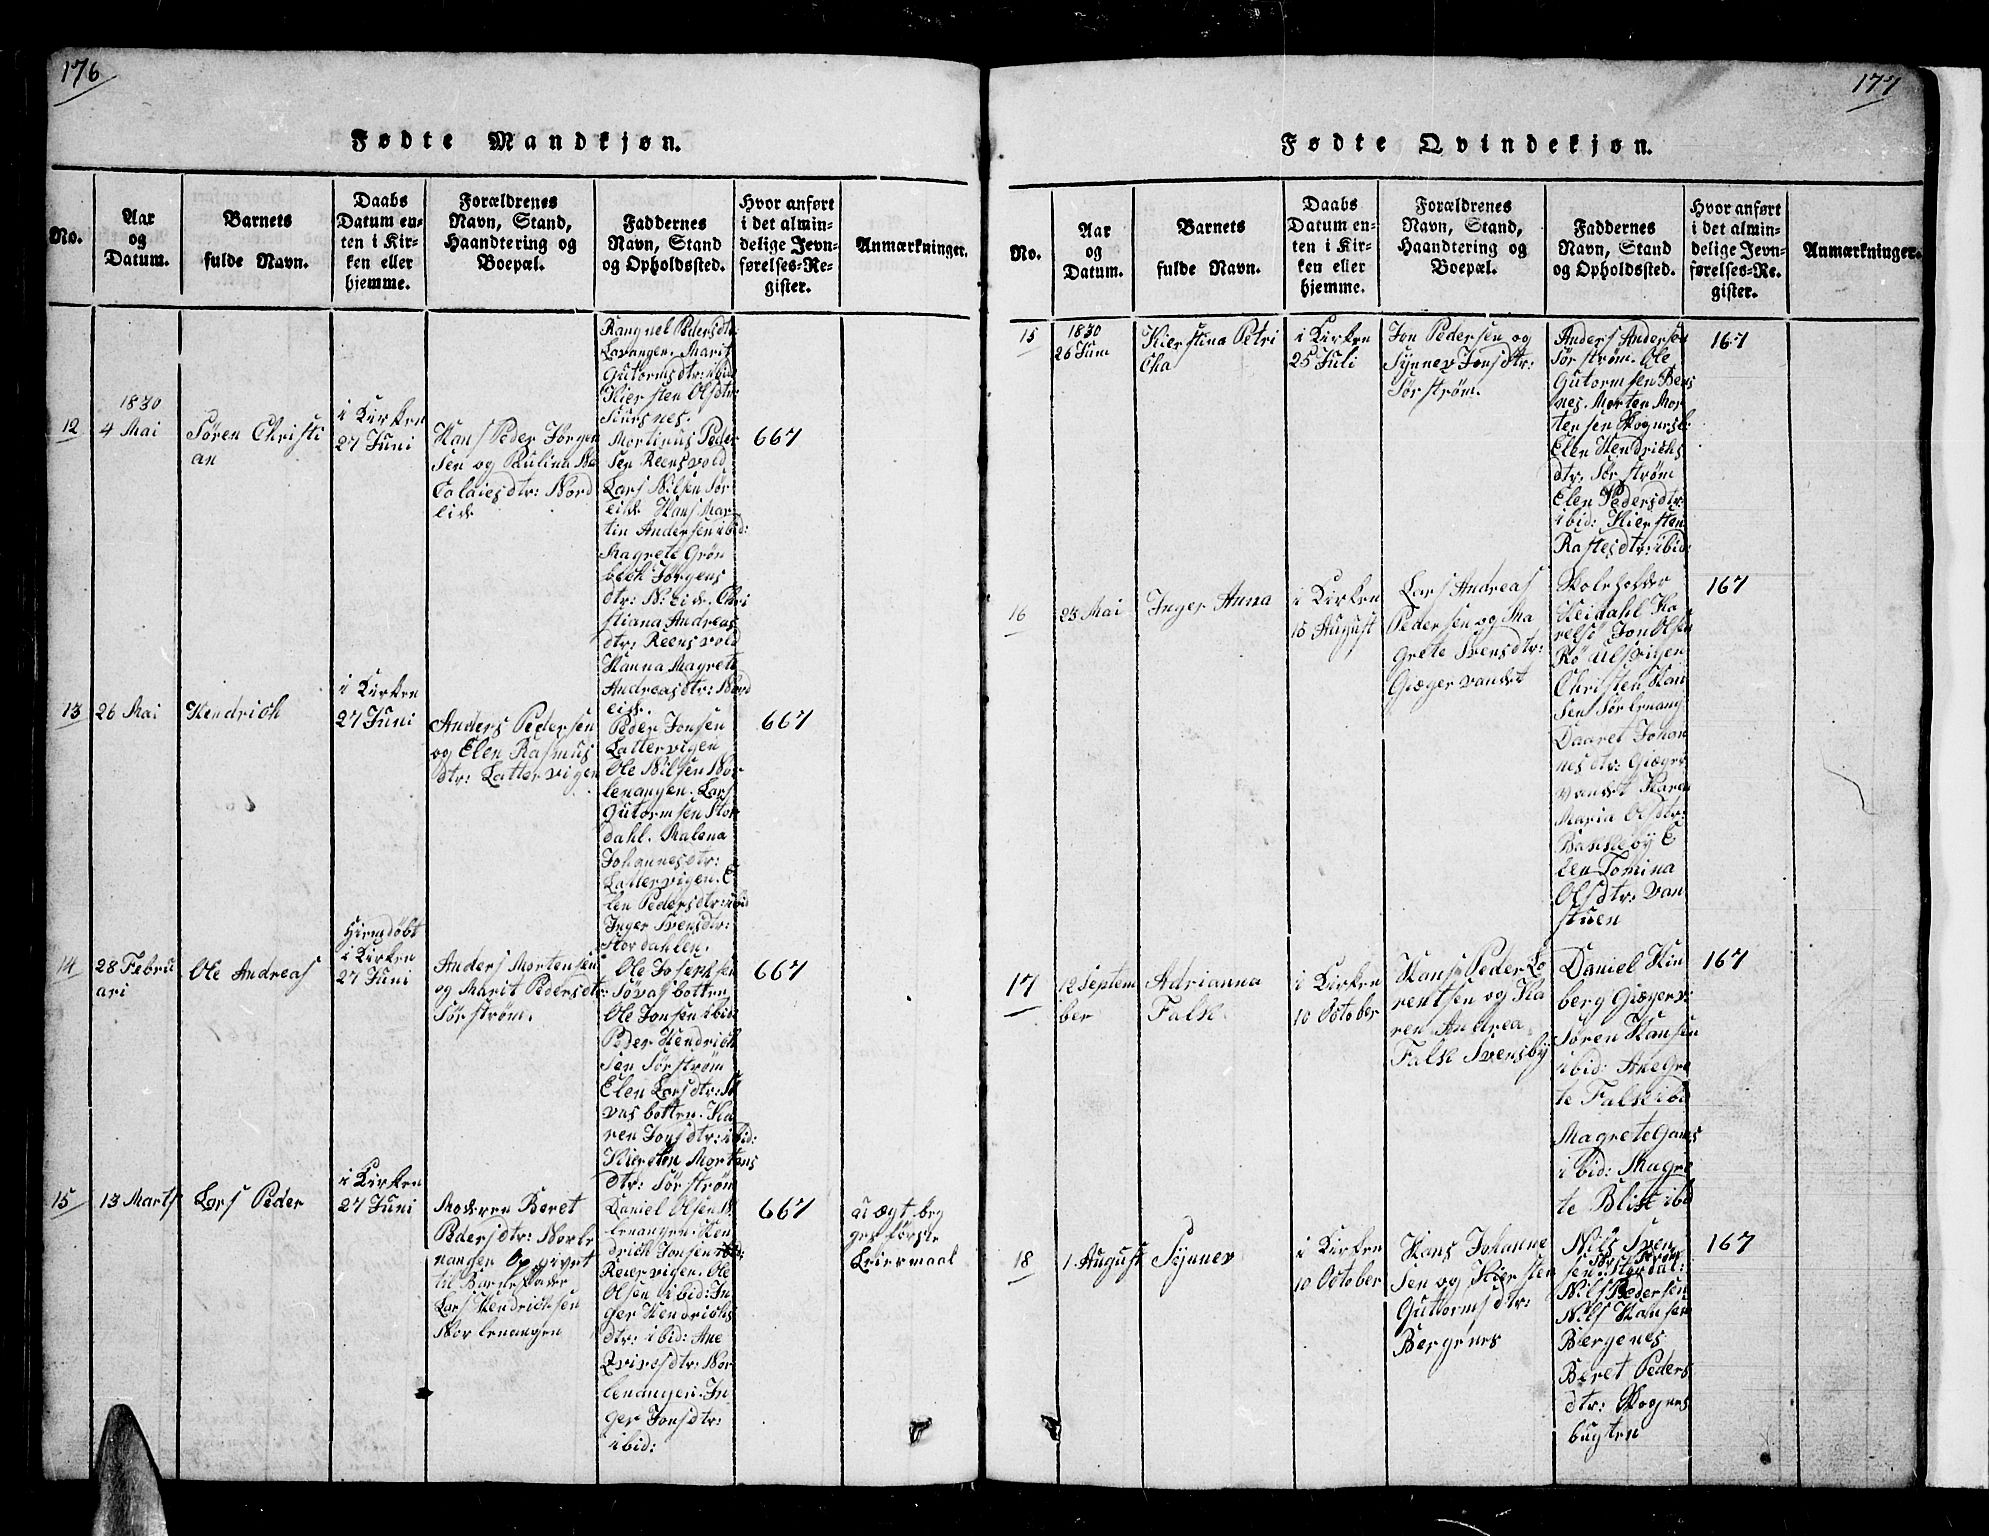 176
Fødte Mandkjøn.
No.
Aar
og
Datum.
Barnets
fulde Navn.
Daabs
Datum en-
ten i Kir-
ken eller
hjemme.
Forældrenes
Navn, Stand,
Haandtering og
Boepæl.
Faddernes
Navn, Stand
og Opholdssted.
Hvor anført
i det almin-
delige Jevn-
førelses-Re-
gister.
Anmærkninger.
Rangnel Pedersdtr:
Lavangen. Marit
Gutormsdtr: ibid
Kiersten Olsdtr:
Siursnes.
12
1830
4 Mai
Søren Christi
an
i Kirken
27 Juni
Hans Peder Jørgen
sen og Paulina Ni
colaiesdtr: Nord
eid
Mortinus Peder
sen Reensvold
Lars Nilsen Sør
eid Hans Mar
tin Andersen ibid:
Magrete Grøn
bech Jørgens
dtr: N: eid. Chri
stiana Andreas
dtr: Reensvold
Hanna Magrete
Andreasdtr: Nord
eid.
667
13
26 Mai
Hendrich
i Kirken
27 Juni
Anders Pedersen
og Elen Rasmus
dtr: Lattervigen
Peder Jonsen
Lattervigen
Ole Nilsen Nor
lenangen. Lars
Gutormsen Stor
dahl. Malena
Johannesdtr:
Lattervigen. E
len Pedersdtr: ibid
Inger Svensdtr:
Stordahlen.
667
14
28 Febru
ari
Ole Andreas
Hiemdöbt
i Kirken
27 Juni
Anders Mortensen
og Marit Pedersdtr:
Sørstrøm.
Ole Josephsen
Søvasbotten
Ole Jonsen ibid:
Peder Hendrich
sen Sørstrøm
Elen Larsdtr: Sø
vasbotten. Ka
ren Jonsdtr: ibid:
Kiersten Mortens
dtr: Sørstrøm
667
15
13 Marts
Lars Peder
i Kirken
27 Juni
Moderen Beret
Pedersdtr: Norle
nangen Opgivet
til Barnefader
Lars Hendrichsen
Norlenangen
Daniel Olsen N.
lenangen. Hen
drich Jonsen ibid:
Reiervigen. Ole
Olsen ibid: In
ger Hendrichs
dtr: ibid: Ane
Qvivesdtr: Nor
lenangen. In
ger Jonsdtr:
ibid:
667
uægt. beg
ges første
Leiermaal
177
Fødte Qvindekjøn.
No.
Aar
og
Datum.
Barnets
fulde Navn.
Daabs
Datum en-
ten i Kir-
ken eller
hjemme.
Forældrenes
Navn, Stand,
Haandtering og
Boepæl.
Faddernes
Navn, Stand
og Opholdssted.
Hvor anført
i det almin-
delige Jevn-
førelses-Re-
gister.
Anmærkninger.
15
1830
26 Juni
Kierstina Petri
cha
i Kirken
25 Juli
Jon Pedersen og
Synnev Jonsdtr:
Sørstrøm.
Anders Andersen
Sørstrøm. Ole
Gutormsen Bens
nes. Morten Mor
tensen Skognesb:
Elen Hendrichs
dtr: Sørstrøm
Elen Pedersdtr:
ibid: Kiersten
Rastesdtr: ibid:
167
16
23 Mai
Inger Anna
i Kirken
15 August
Lars Andreas
Pedersen og Ma
grete Svensdtr:
Giægervandet
Skoleholder
Heidahl Ka
relsö Jon Olsen
Rö Ulsvigen
Christen Han
sen Sørlenang
Daaret Johan
nesdtr: Giæger
vandet Karen
Maria Olsdtr:
Bankeby E
len Tomina
Olsdtr: Van
stuen
167
17
12 Septem
ber
Adrianna
Falk.
i Kirken
10 October
Hans Peder Lo
rentsen og Ka
ren Andrea
Falk Svensby
Daniel Kin
berg Giægerv:
Søren Hansen
ibid: Ane Gre
te Falk ibid
Magrete Gams
ibid: Magre
te Blix ibid
167
18
1 August
Synnev
i Kirken
10 October
Hans Johanne
sen og Kiersten
Guttormsdtr:
Bergenes
Nils Sven
sen Stordal:
Nils Pedersen
Nils Hansen
Bærgenes
Beret Peders
dtr: Skognes
bugten
167